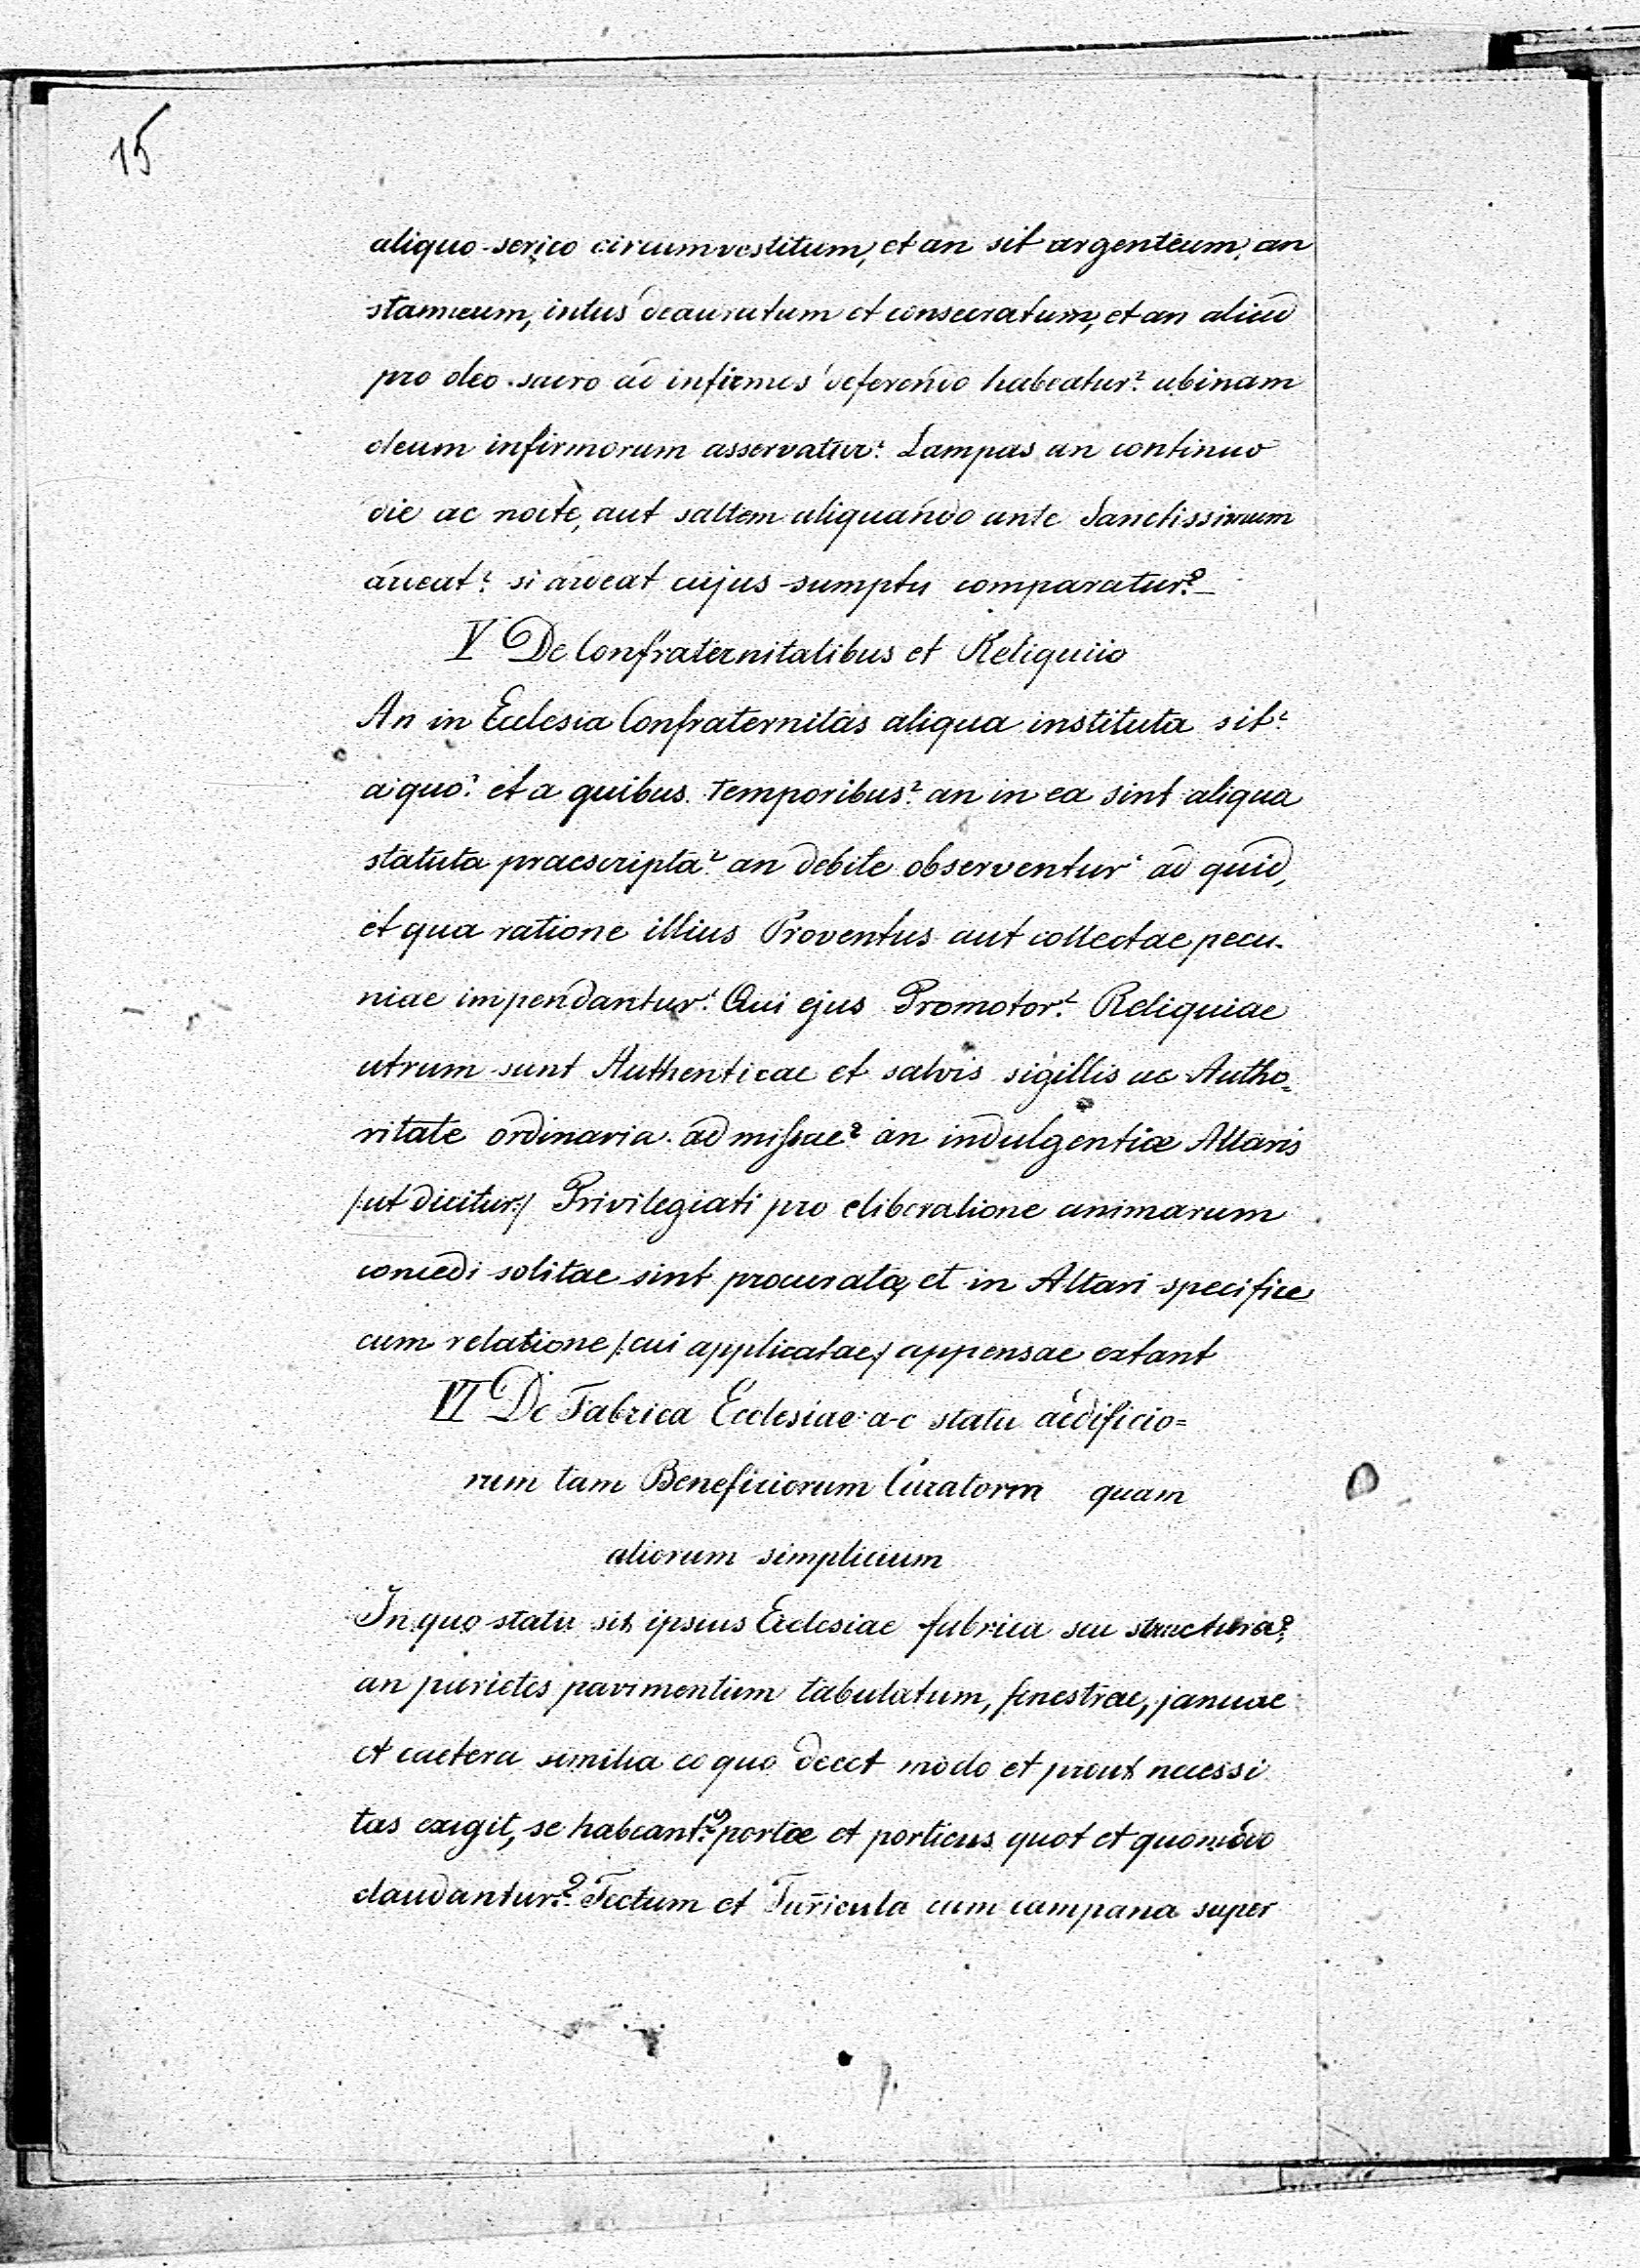 15
aliquo serico circumvestitum, et an sit argenteum, an
stanneum, intus deauratum et consecratum, et an aliud
pro oleo sacro ad infirmos deferendo habeatur? ubinam
oleum infirmorum asservatur? Lampas an continuo
die ac nocte, aut saltem aliquando ante Sanctissimum
ardeat? si ardeat cujus sumptu comparatur?
V De Confraternitatibus et Reliquiis
An in Ecclesia Confraternitas aliqua instituta sit?
a quo? et a quibus temporibus? an in ea sint aliqua
statuta praescripta? an debite observentur? ad quid,
et qua ratione illius Proventus aut collectae pecu-
niae impendantur? Qui ejus Promotor? Reliquiae
utrum sunt Authenticae et salvis sigillis ac Autho=
ritate ordinaria admissae? an indulgentiae Altaris
/:ut dicitur:/ Privilegiati pro eliberatione animarum
concedi solitae sint procuratae, et in Altari specifice
cum relatione /:cui applicatae:/ appensae extant
VI De Fabrica Ecclesiae ac statu aedificio=
rum tam Beneficiorum Curatorm quam
aliorum simplicium
In quo statu sit ipsius Ecclesiae fabrica seu structura?
an parietes pavimentum tabulatum, fenestrae, januae
et caetera similia eo quo decet modo et prout necessi
tas exigit, se habeant? portae et porticus quot et quomodo
claudantur? Tectum et Turricula cum campana super